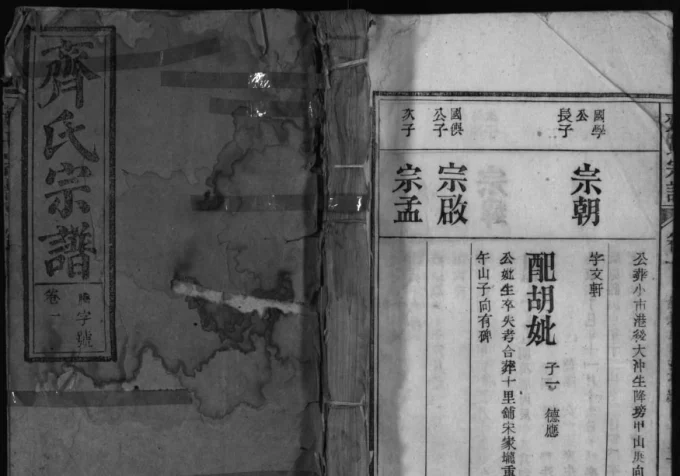 齊氏宗譜
卷一
字號
公葬小市港後大沖生降塝甲山庚向
國學
公
長子
宗朝
字文軒
配胡妣
子一
德應
公妣生卒失考合葬十里舖宋家壠
國興
公子
宗啟
次子
宗孟
午山子向有碑